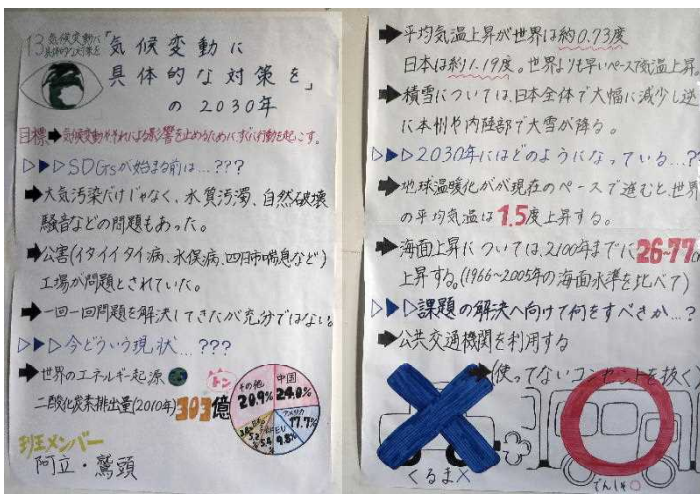 13 気候変動に
具体的な対策を
「気候変動に
具体的な対策を」
の2030年
目標➡気候変動やそれによる影響を止めるためにすぐに行動を起こす。
▷▶▷SDGsが始まる前は…???
➡大気汚染だけじゃなく、水質汚濁、自然破壊
騒音などの問題もあった。
➡公害(イタイイタイ病、水俣病、四日市喘息など)
工場が問題とされていた。
➡一回一回問題を解決してきたが充分ではない。
▷▶▷今どういう現状…???
➡世界のエネルギー起源
二酸化炭素排出量(2010年)303億
トン
その他
20.9%
中国
24.0%
アメリカ
17.7%
EU
9.8%
班メンバー
阿立・鷲頭
➡平均気温上昇が世界は約0.73度
日本は約1.19度。世界よりも早いペースで気温上昇
➡積雪については、日本全体で大幅に減少し逆
に本州や内陸部で大雪が降る。
▷▶▷2030年にはどのようになっている…?
➡地球温暖化がが現在のペースで進むと、世界
の平均気温は1.5度上昇する。
➡海面上昇については、2100年までに26~77
上昇する。(1966~2005年の海面水準を比べて)
▷▶▷課題の解決へ向けて何をすべきか…?
➡公共交通機関を利用する
➡(使ってないコンセントを抜く)
くるま×
でんしゃ○